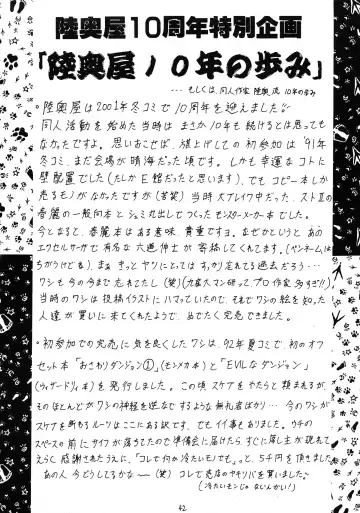 陸奥屋10周年特別企画
「陸奥屋10年の歩み」
・・・もしくは、同人作家 陸奥 流 10年の歩み
陸奥屋は2001年冬コミで10周年を迎えました
同人活動を始めた当時は まさか10年も続けるとは思っても
なかったですよ。思いおこせば、旗上げしての初参加は '91年
冬コミ、まだ会場が晴海だった頃です。しかも幸運なコトに
壁配置でした(たしかE館だったと思います)、でもコピー本しか
売るモノがなかったですが(苦笑) 当時大ブレイク中だった、ストⅡの
春麗の一般向本と
モンスターメーカー本でした。
今となると、春麗本はある意味 貴重ですヨ。なぜかというと あの
エクセルサーガで有名な六道伸士が寄稿してくれてます。(ペンネームは
ちがうけども)、まぁ きっとヤツにとってはすっかり忘れてる過去だろう・・・
ワシも今の今まで忘れてたし(笑) (九産大マン研ってプロ作家多すぎ!!)
当時のワシは投稿イラストにハマっていたので、それでワシの絵を知った
人達が買いに来てくれたようで、めでたく完売できました。
・初参加での完売に気を良くしたワシは、92年夏コミで、初のオフ
セット本「おさわりダンジョン①」(モンメカ本)と「EVILなダンジョン」
(ウィザードリィ本)を発行しました。この頃スケブをやたらと頼まれるが、
そのほとんどがワシの神経を逆なでするような無礼者ばかり・・・今のワシが
スケブを断わるルーツはここにある訳です、でもイイ事もありました。ウチの
スペースの前にサイフが落ちてたので準備会に届けたら すぐに落し主が現れて
えらく感謝されたうえに、「コレで何か冷たいモノでも」っと、5千円を頂きました
あの人 今どうしてるかな〜(笑) コレで売店のヤキソバを買いました。
(冷たいモンじゃないんかい!)
42